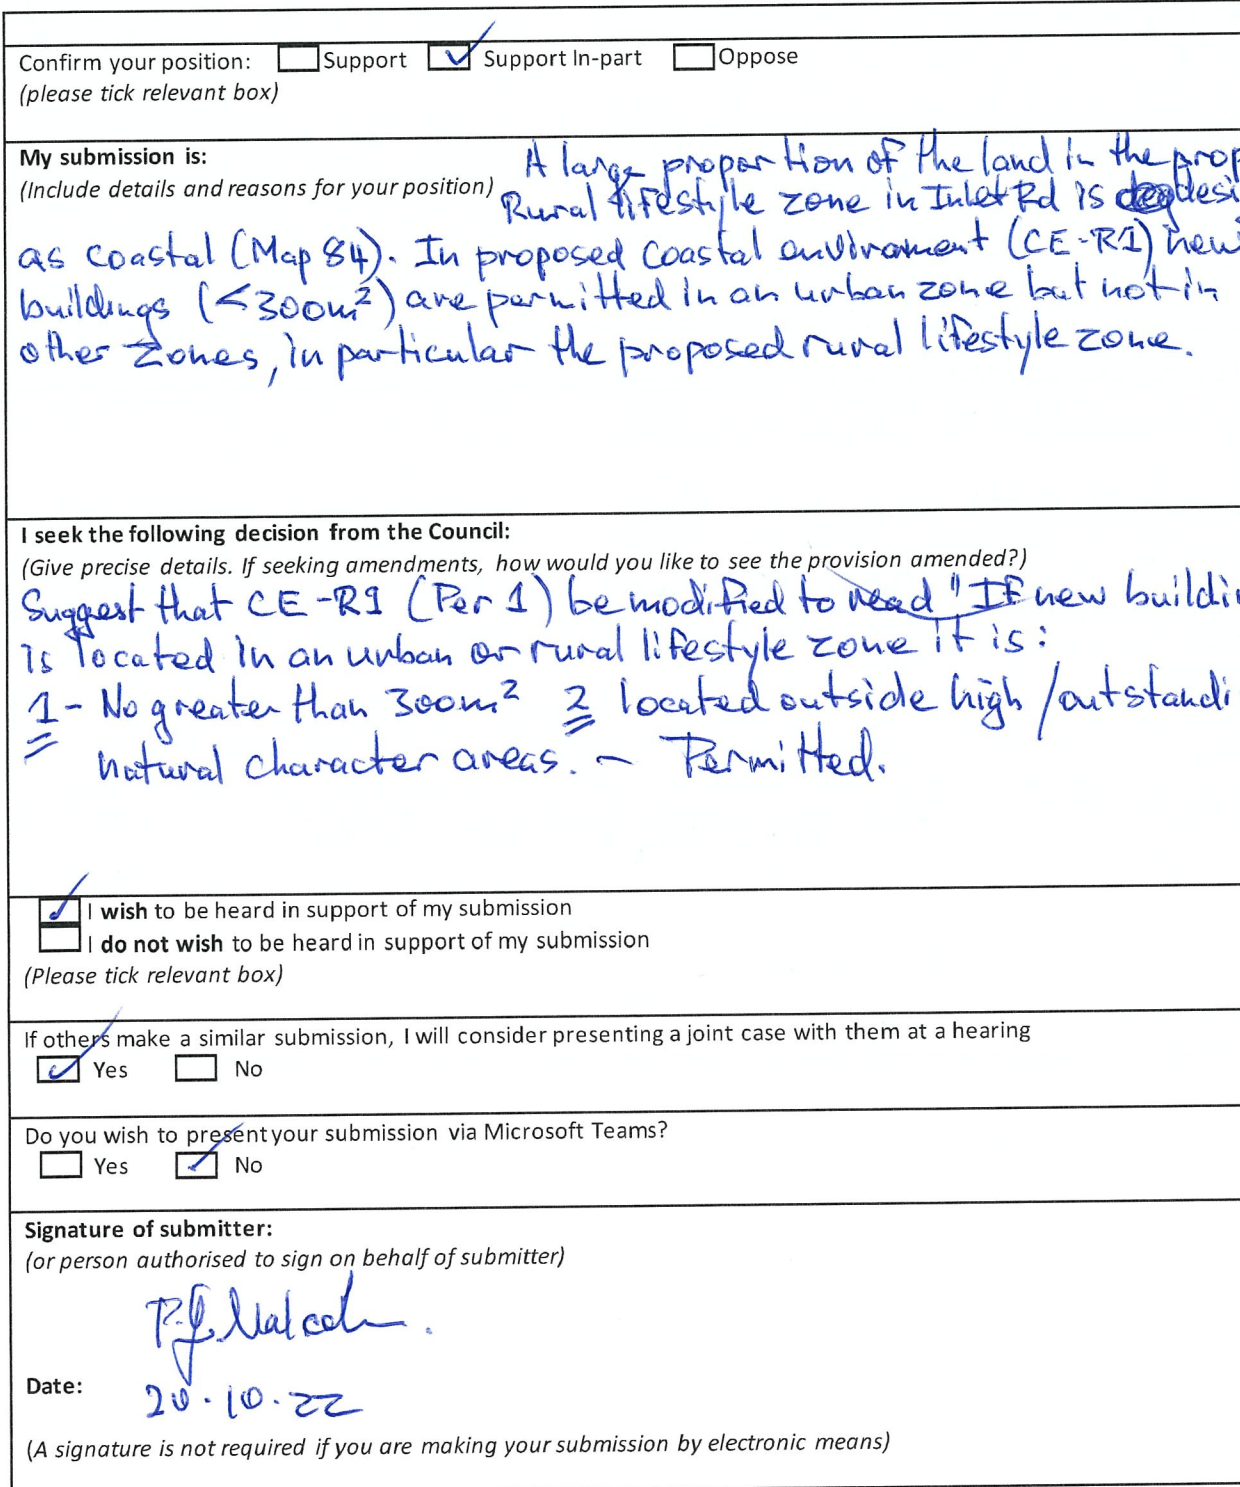 Confirm your position: Support Support In-part Oppose
(please tick relevant box)
My submission is:
(Include details and reasons for your position)
A large proportion of the land in the prop
Rural lifestyle zone in Inlet Rd is desi
as coastal (Map 84). In proposed coastal environment (CE-R1) new
buildings (<300m²) are permitted in an urban zone but not in
other zones, in particular the proposed rural lifestyle zone.
I seek the following decision from the Council:
(Give precise details. If seeking amendments, how would you like to see the provision amended?)
Suggest that CE-R1 (Per 1) be modified to read "If new buildin
is located in an urban or rural lifestyle zone it is:
1 - No greater than 300m² 2 located outside high/outstandi
natural character areas. - Permitted.
I wish to be heard in support of my submission
I do not wish to be heard in support of my submission
(Please tick relevant box)
If others make a similar submission, I will consider presenting a joint case with them at a hearing
Yes No
Do you wish to present your submission via Microsoft Teams?
Yes No
Signature of submitter:
(or person authorised to sign on behalf of submitter)
P.J. Malcolm.
Date: 20.10.22
(A signature is not required if you are making your submission by electronic means)